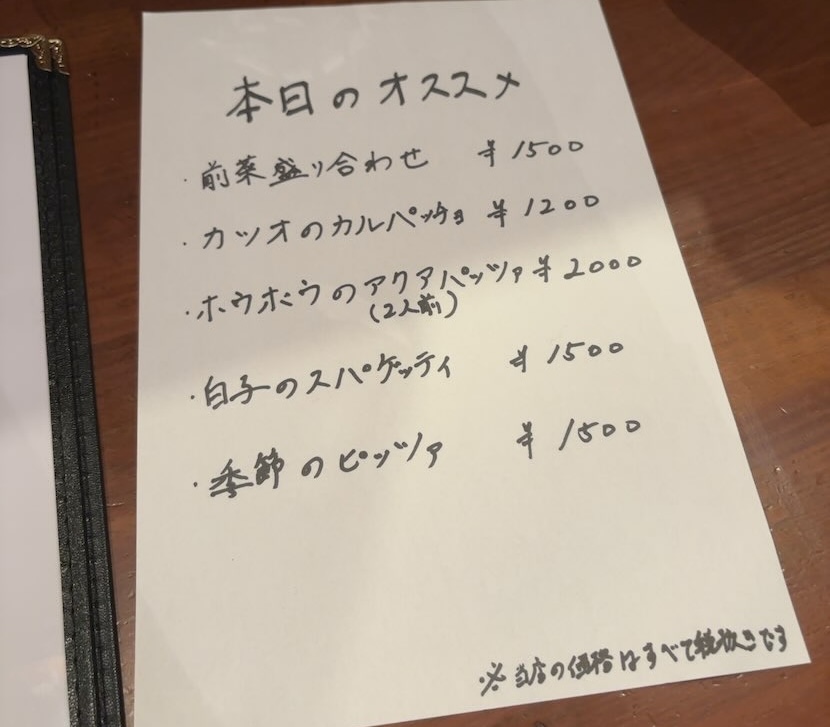 本日のオススメ
・前菜盛り合わせ ¥1500
・カツオのカルパッチョ ¥1200
・ホウボウのアクアパッツァ ¥2000
(2人前)
・白子のスパゲッティ ¥1500
・季節のピッツァ ¥1500
※当店の価格はすべて税抜きです